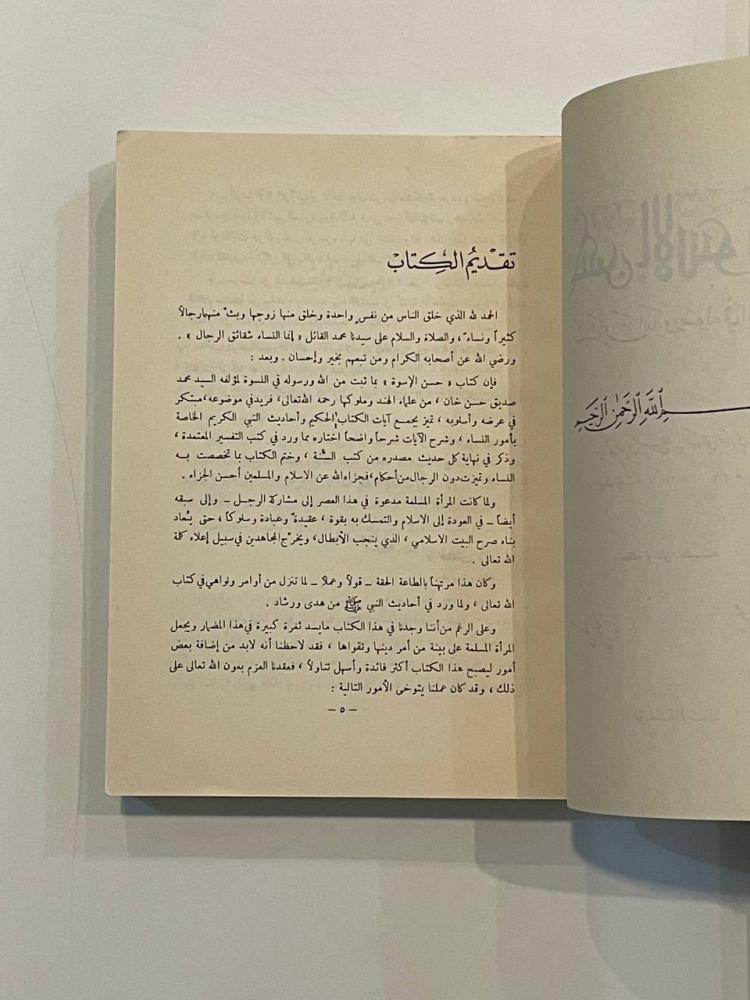 تقديم الكتاب
الحمد لله الذي خلق الناس من نفس واحدة وخلق منها زوجها وبث منهما رجالاً
كثيراً ونساءً ، والصلاة والسلام على سيدنا محمد القائل « إنما النساء شقائق الرجال » .
ورضي الله عن أصحابه الكرام ومن تبعهم بخير وإحسان . وبعد :
فإن كتاب « حسن الإسوة » بما ثبت من الله ورسوله في النسوة لمؤلفه السيد محمد
صديق حسن خان ، من علماء الهند وملوكها رحمه الله تعالى، فريد في موضوعه، مبتكر
في عرضه وأسلوبه ، تميز بجمع آيات الكتاب الحكيم وأحاديث النبي الكريم الخاصة
بأمور النساء ، وشرح الآيات شرحاً واضحاً اختاره مما ورد في كتب التفسير المعتمدة ،
وذكر في نهاية كل حديث مصدره من كتب السُّنة ، وختم الكتاب بما تخصصت به
النساء وتميزت دون الرجال من أحكام، فجزاه الله عن الاسلام والمسلمين أحسن الجزاء .
ولما كانت المرأة المسلمة مدعوة في هذا العصر إلى مشاركة الرجل – وإلى سبقه
أيضاً – في العودة إلى الاسلام والتمسك به بقوة ، عقيدةً وعبادة وسلوكاً ، حتى يُعاد
بناء صرح البيت الاسلامي ، الذي ينجب الأبطال، ويخرج المجاهدين في سبيل إعلاء كلمة
الله تعالى .
وكان هذا مرتهناً بالطاعة الحقة – قولاً وعملاً – لما تنزل من أوامر ونواهي في كتاب
الله تعالى ، ولما ورد في أحاديث النبي ﷺ من هدى ورشاد .
وعلى الرغم من أننا وجدنا في هذا الكتاب ما يسد ثغرة كبيرة في هذا المضمار ويجعل
المرأة المسلمة على بينة من أمر دينها وتقواها ، فقد لاحظنا أنه لابد من إضافة بعض
أمور ليصبح هذا الكتاب أكثر فائدة وأسهل تناولاً ، فعقدنا العزم بعون الله تعالى على
ذلك ، وقد كان عملنا يتوخى الأمور التالية :
– ٥ –
الله الرحمن الرحيم